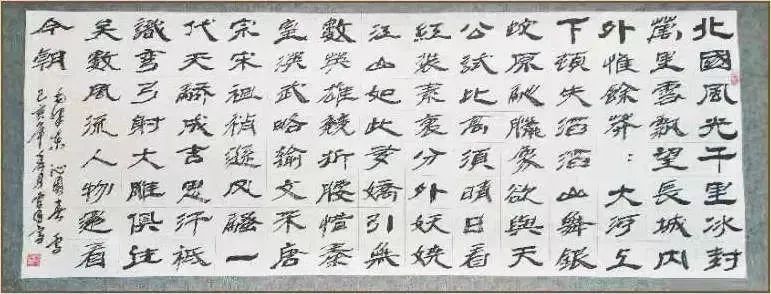 北國風光千里冰封
萬里雪飄望長城內
外惟餘莽:大河上
下頓失滔滔山舞銀
蛇原馳臘象欲與天
公試比高須晴日看
紅裝素裹分外妖嬈
江山如此多嬌引無
數英雄競折腰惜秦
皇漢武略輸文采唐
宗宋祖稍遜風騷一
代天驕成吉思汗祇
識彎弓射大雕俱往
矣數風流人物還看
今朝
毛澤東 沁園春 雪
己亥年